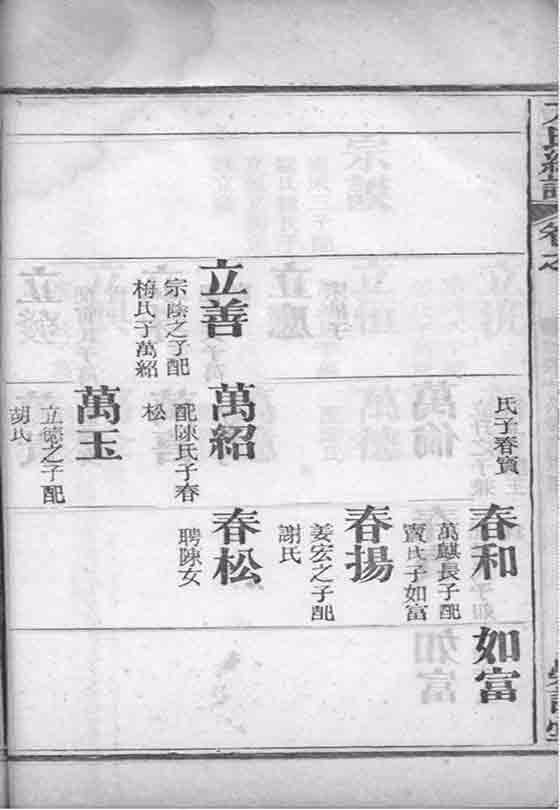 氏子春賓
春和
萬麒長子配
竇氏子如富
如富
春揚
姜宏之子配
謝氏
立善
宗陰之子配
梅氏子萬紹
萬紹
配陳氏子春
松
春松
聘陳女
萬玉
立德之子配
胡氏